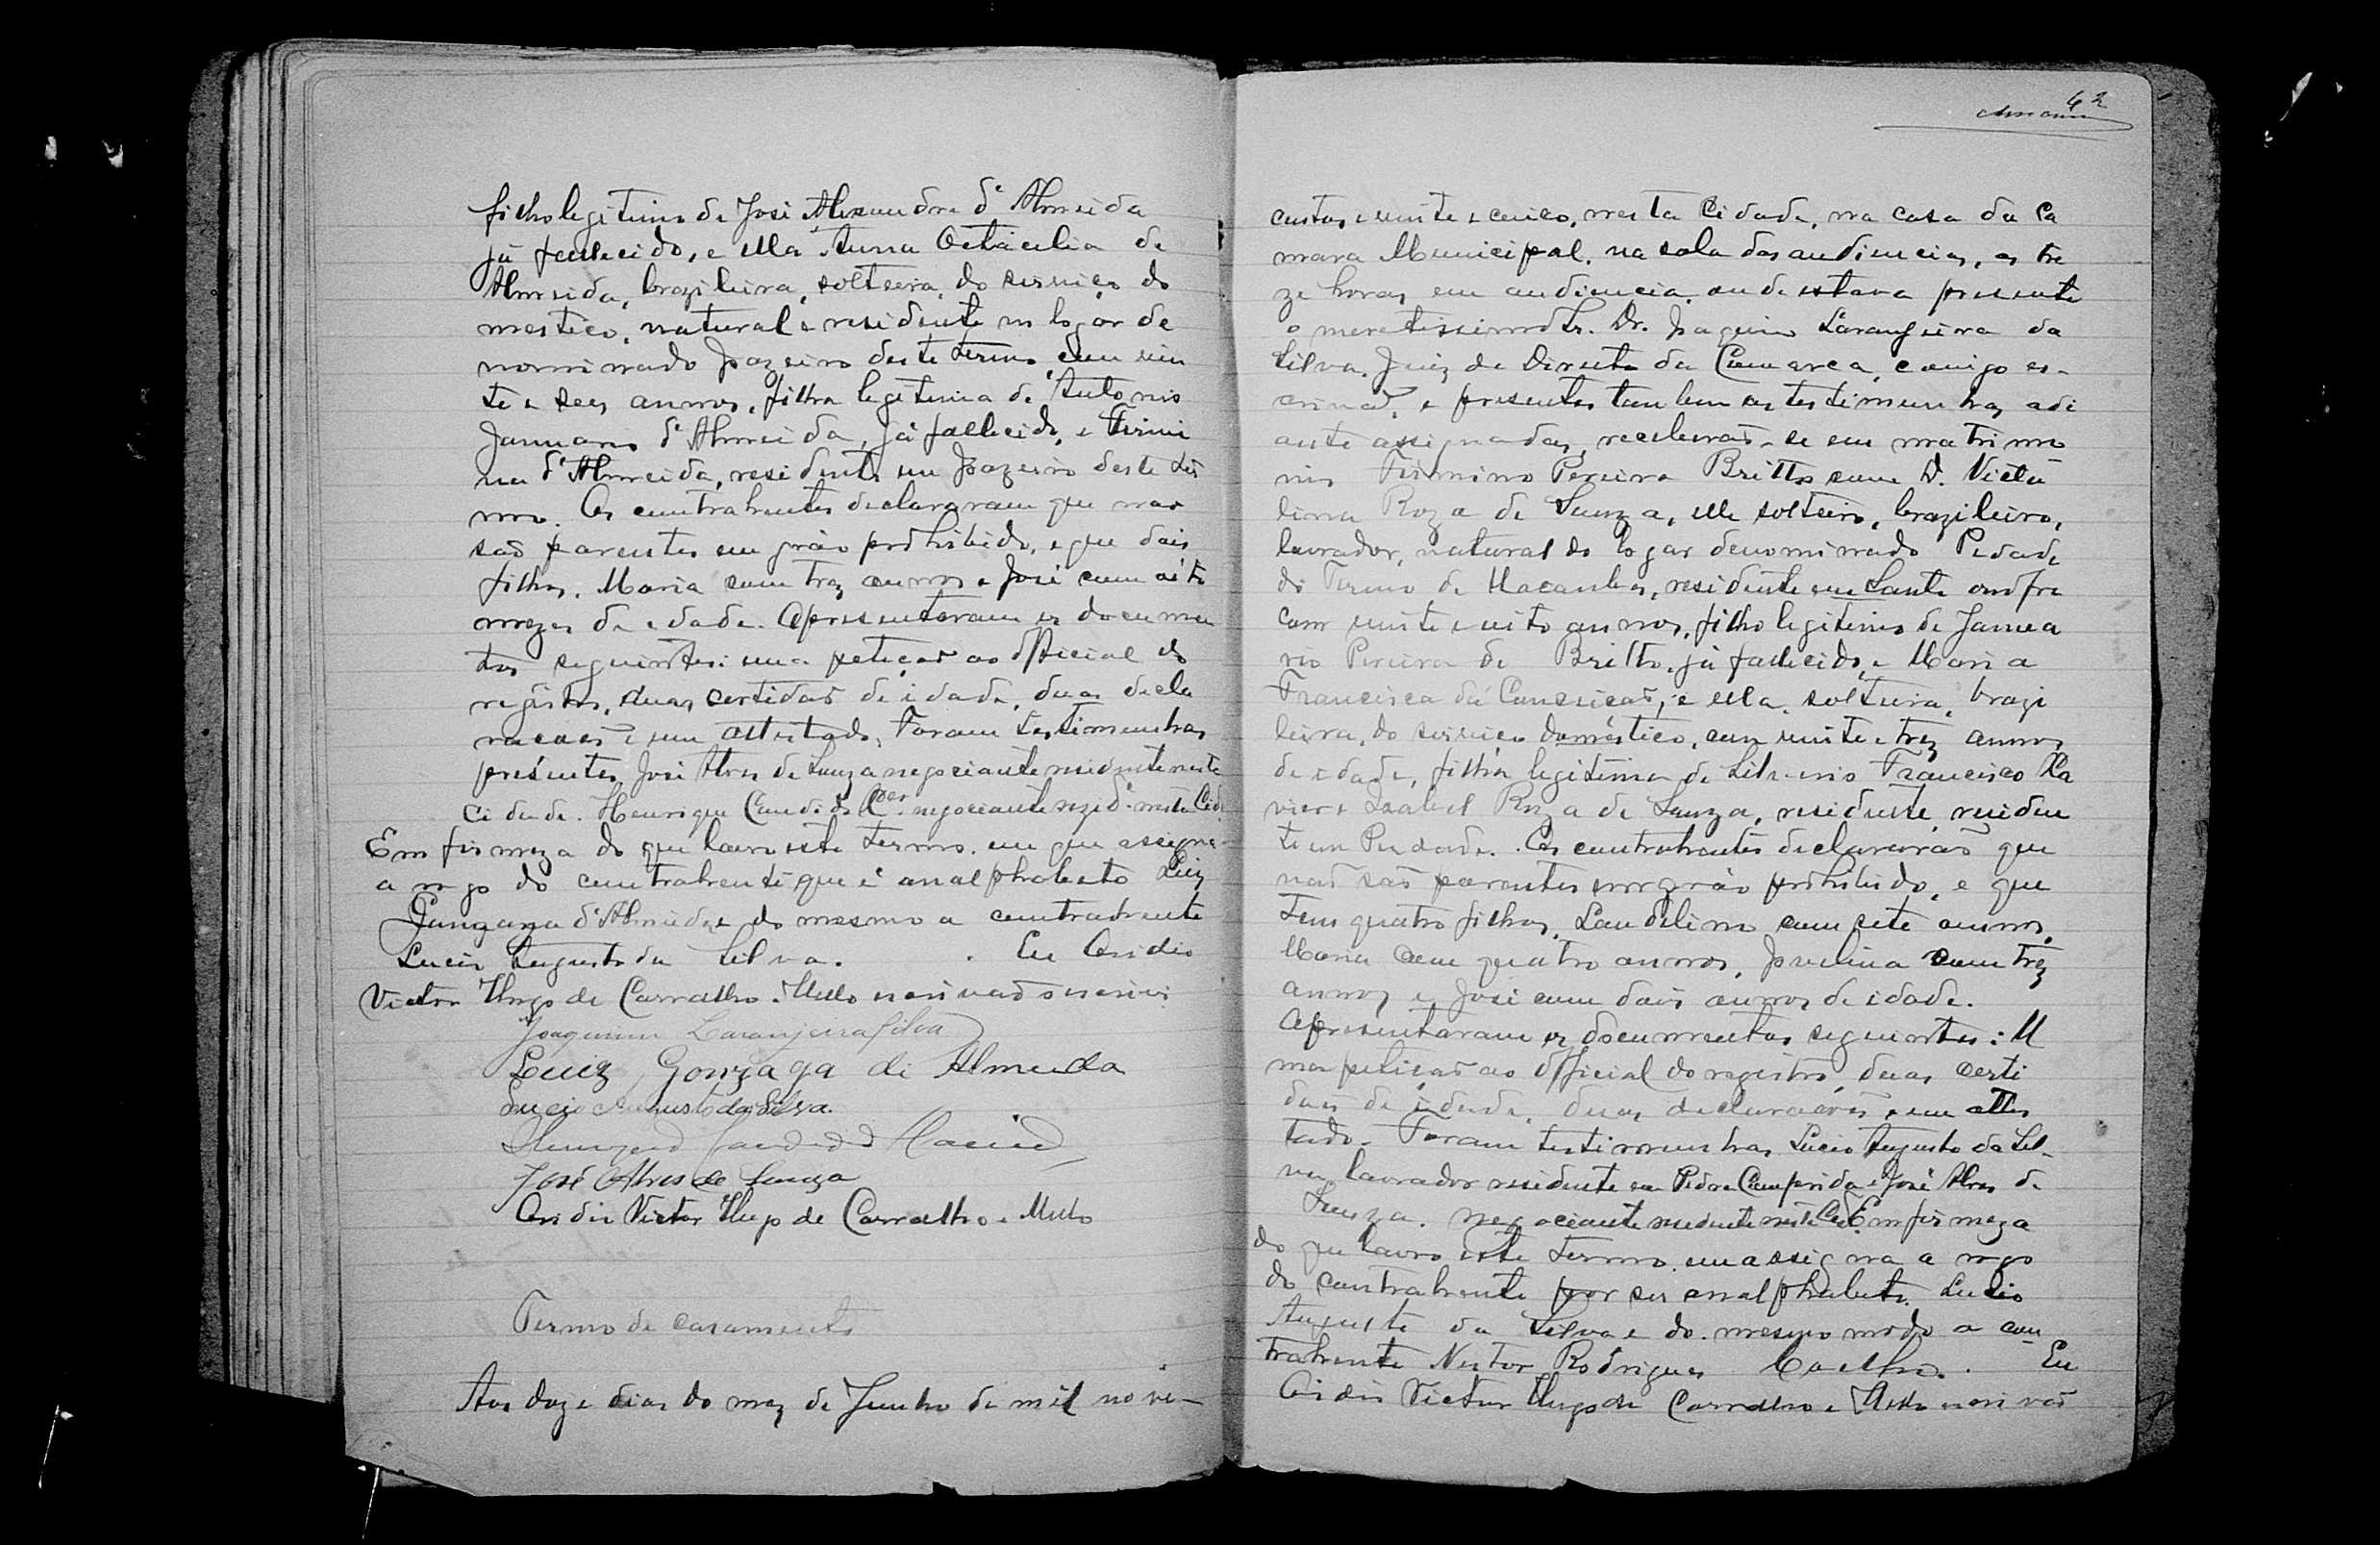 filho legitimo de José Alexandre d'Almeida
já fallecido, e ella Anna Octacilia de
Almeida, brazileira, solteira, do serviço do
mestico, natural e residente no logar de
nominado Joazeiro deste termo, com vin
te e seis annos, filha legitima de Antonio
Januario d'Almeida, já fallecido, e Firmi
na d'Almeida, residente em Joazeiro deste ter
mo. Os contrahentes declararam que não
são parentes em gráo prohibido, e que dois
filhos, Maria com trez annos e José com oito
mezes de edade. Apresentaram os documen
tos seguintes: uma petição ao official do
registro, duas certidões de idade, duas decla
rações e um attestado. Foram testimunhas
presentes, José Alves de Souza negociante residente nesta
cidade. Henrique Candido negociante rezid. nesta Cid.
Em firmeza do que lavro este termo. em que assigna
a rogo do contrahente que é analphabeto Luiz
Gonzaga d'Almeida, e do mesmo a contrahente
Lucio Augusto da Silva. Eu Ovidio
Victor Hugo de Carvalho e Mello escrivão o escrevi
Joaquim Laranjeira Silva
Luiz Gonzaga de Almeida
Lucio Augusto da Silva.
Candido
José Alves de Souza
Ovidio Victor Hugo de Carvalho e Mello
Termo de casamento
Aos doze dias do mez de Junho de mil nove-
62
centos e vinte e cinco, nesta Cidade, na casa da Ca
mara Municipal, na sala das audiencias, as tre
ze horas em audiencia, onde estava presente
o meretissimo Sr. Dr. Joaquim Laranjeira da
Silva. Juiz de Direito da Comarca, comigo es-
crivão, e presentes tambem as testimunhas adi
ante assignadas, receberão-se em matrimo
nio Firmino Pereira Britto com D. Victa
lina Roza de Souza, elle solteiro, brazileiro,
lavrador, natural do logar denominado Piedade
do Termo de Macaubas, residente em Santo Onofre
com vinte e oito annos, filho legitimo de Janua
rio Pereira de Britto, já fallecido, e Maria
Francisca da Conceição, e ella, solteira, brazi
leira, do serviço doméstico, com vinte e trez annos
de edade, filha legitima de Silverio Francisco Xa
vier e Izabel Roza de Souza, residente, residen
te em Piedade. Os contrahentes declararão que
não são parentes em gráo prohibido, e que
tem quatro filhos, Laudelino com sete annos,
Maria com quatro annos, Jovelina com trez
annos e José com dois annos de idade.
Apresentaram os documentos seguintes: U
ma petição ao official do registro, duas certi
dões de idade, duas declarações e um attes
tado. Foram testimunhas Lucio Augusto da Sil-
va, lavrador residente em Pedra Comprida e José Alves de
Souza. negociante residente nesta Cid. Em firmeza
do que lavro este termo. em assigna a rogo
do contrahente por ser analphabeto Lucio
Augusto da Silva e do mesmo modo a con
trahente Nestor Rodrigues Coelho. Eu
Ovidio Victor Hugo de Carvalho e Mello escrivão